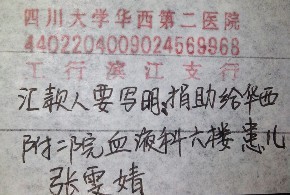 四川大学华西第二医院
4402204009024569968
工行滨江支行
汇款人要写明:捐助给华西
附二院血液科六楼患儿
张雯婧